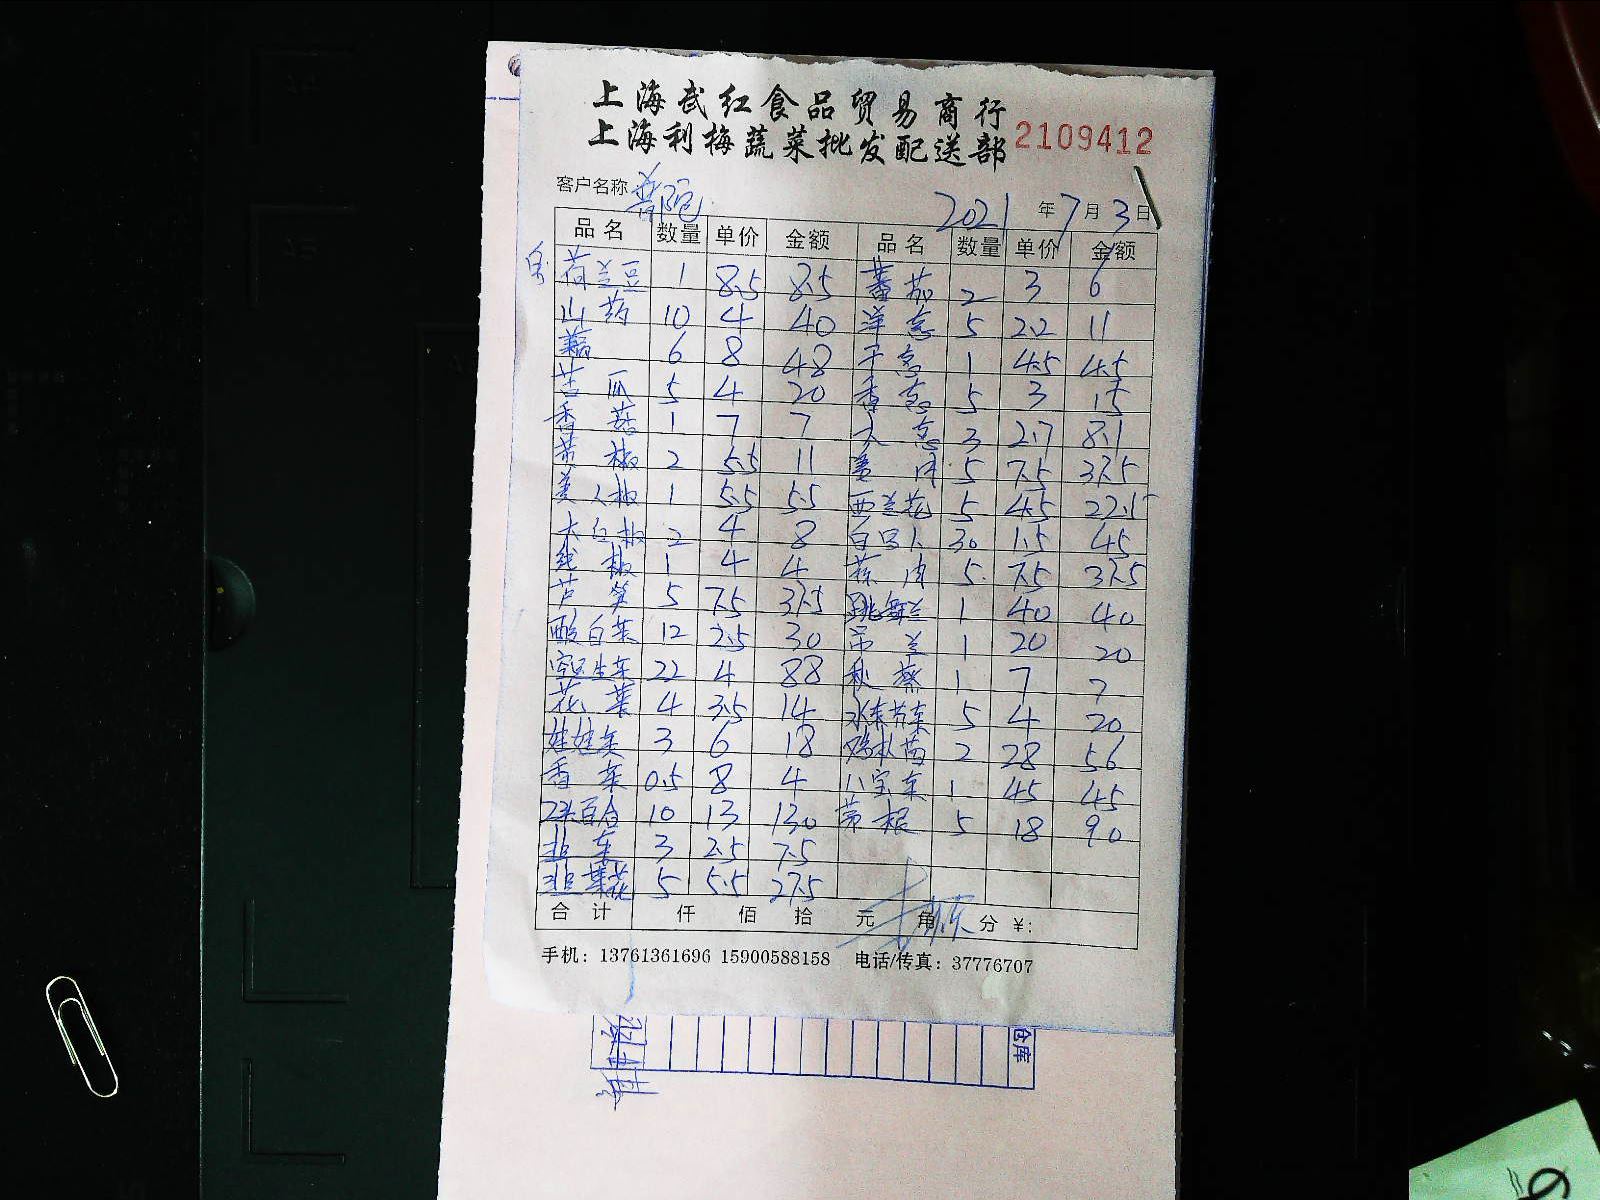 上海武红食品贸易商行
上海利梅蔬菜批发配送部 2109412
客户名称 普陀 2021年7月3日
品名 数量 单价 金额 品名 数量 单价 金额
荷兰豆 1 8.5 8.5 蕃茄 2 3 6
山药 10 4 40 洋葱 5 2.2 11
藕 6 8 48 干葱 1 4.5 4.5
苦瓜 5 4 20 香葱 5 3 15
香菇 1 7 7 大葱 3 2.7 8.1
黄椒 2 5.5 11 姜肉 5 7.5 37.5
美人椒 1 5.5 5.5 西兰花 5 4.5 22.5
大白椒 2 4 8 白 30 1.5 45
线椒 1 4 4 蒜肉 5 7.5 37.5
芦笋 5 7.5 37.5 跳舞兰 1 40 40
酸白菜 12 2.5 30 吊兰 1 20 20
生菜 22 4 88 秋葵 1 7 7
花菜 4 3.5 14 水东芥菜 5 4 20
娃娃菜 3 6 18 鸡枞菌 2 28 56
香菜 0.5 8 4 八宝菜 1 45 45
2头百合 10 13 130 茅根 5 18 90
韭菜 3 2.5 7.5
韭菜花 5 5.5 27.5
合计 仟 佰 拾 元 角 分 ¥:
手机：13761361696 15900588158 电话/传真：37776707
仓库